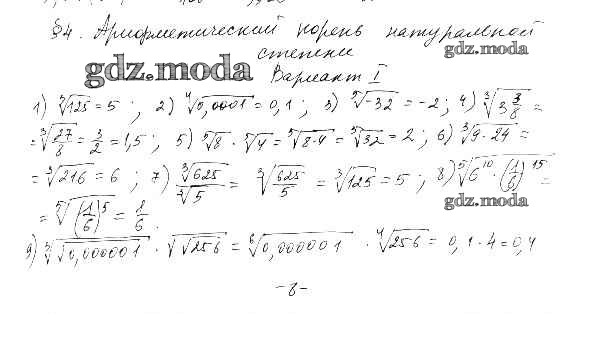 §4. Арифметический корень натуральной
степени
gdz.moda
gdz.moda
Вариант I
1) ∛125 = 5 ; 2) ⁴√0,0001 = 0,1 ; 3) ⁵√-32 = -2 ; 4) ∛(3 3/8) =
= ∛(27/8) = 3/2 = 1,5 ; 5) ⁵√8 · ⁵√4 = ⁵√(8·4) = ⁵√32 = 2 ; 6) ∛(9·24) =
= ∛216 = 6 ; 7) ∛625/∛5 = ∛(625/5) = ∛125 = 5 ; 8) ⁵√(6¹⁰ · (1/6)¹⁵) =
gdz.moda
= ⁵√((1/6)⁵) = 1/6.
9) ∛√0,000001 · √√256 = ⁶√0,000001 · ⁴√256 = 0,1·4 = 0,4